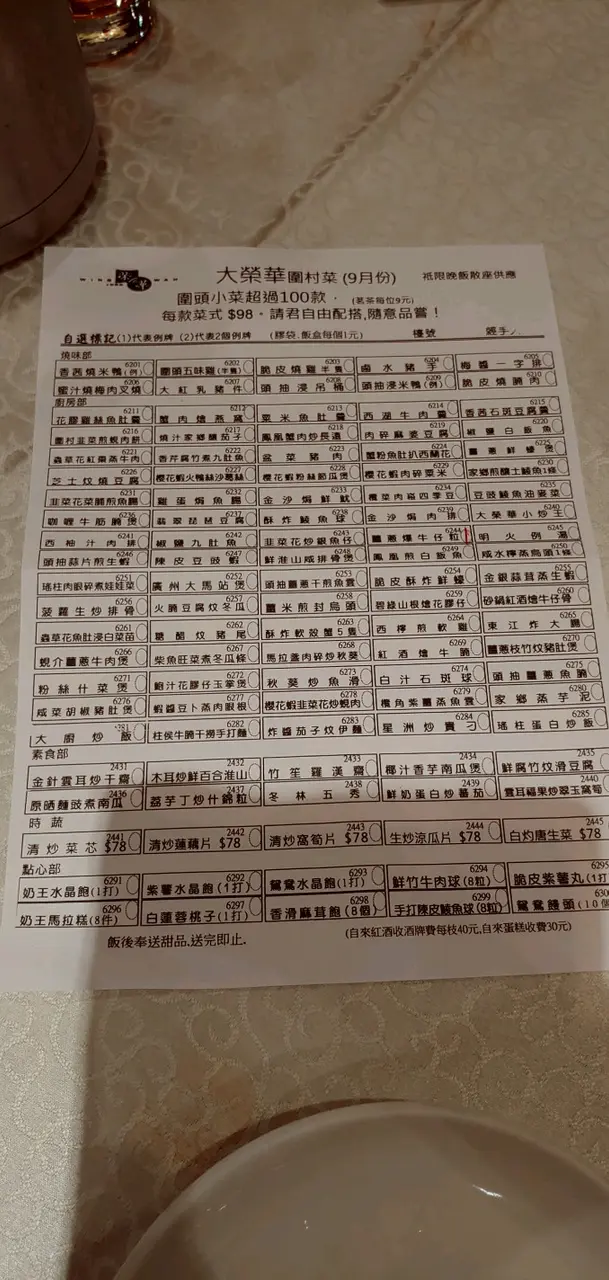 WING WAH
大榮華圍村菜 (9月份) 祇限晚飯散座供應
圍頭小菜超過100款． (茗茶每位9元)
每款菜式 $98。請君自由配搭,隨意品嘗！
自選標記(1)代表例牌 (2)代表2個例牌 (膠袋.飯盒每個1元) 檯號 經手人
燒味部
6201 6202 6203 6204 6205
香茜燒米鴨(例) 圍頭五味雞(半隻) 脆皮燒雞半隻 鹵水豬手 梅醬一字排
6206 6207 6208 6209 6210
蜜汁燒梅肉叉燒 大紅乳豬件 頭抽浸吊桶 頭抽浸米鴨(例) 脆皮燒腩肉
廚房部
6211 6212 6213 6214 6215
花膠雞絲魚肚羹 蟹肉燴燕窩 粟米魚肚羹 西湖牛肉羹 香茜石斑豆腐羹
6216 6217 6218 6219 6220
圍村韭菜煎蝦肉餅 燒汁家鄉釀茄子 鳳凰蟹肉炒長遠 肉碎麻婆豆腐 椒鹽白飯魚
6221 6222 6223 6224 6225
蟲草花紅棗蒸牛肉 香芹腐竹煮九肚魚 盆菜豬肉 蟹粉魚肚扒西蘭花 薑蔥鮮蠔煲
6226 6227 6228 6229 6230
芝士炆燒豆腐 櫻花蝦火鴨絲沙葛絲 櫻花蝦粉絲節瓜煲 櫻花蝦肉碎粟米 家鄉煎釀土鯪魚1條
6231 6232 6233 6234 6235
韭菜花菜脯煎魚腸 雞蛋焗魚腸 金沙焗鮮魷 欖菜肉崧四季豆 豆豉鯪魚油麥菜
6236 6237 6238 6239 6240
咖喱牛筋腩煲 翡翠琵琶豆腐 酥炸鯪魚球 金沙焗肉排 大榮華小炒王
6241 6242 6243 6244 6245
西柚汁肉排 椒鹽九肚魚 韭菜花炒銀魚仔 薑蔥爆牛仔粒 明火例湯
6246 6247 6248 6249 6250
頭抽蒜片煎生蝦 陳皮豆豉蝦 鮮淮山咸排骨煲 鳳凰煎白飯魚 咸水檸蒸烏頭1條
6251 6252 6253 6254 6255
瑤柱肉眼碎煮娃娃菜 廣州大馬站煲 頭抽薑蔥干煎魚雲 脆皮酥炸鮮蠔 金銀蒜茸蒸生蝦
6256 6257 6258 6259 6260
菠蘿生炒排骨 火腩豆腐炆冬瓜 薑米煎封烏頭 碧綠山根燴花膠仔 砂鍋紅酒燴牛仔骨
6261 6262 6263 6264 6265
蟲草花魚肚浸白菜苗 糖醋炆豬尾 酥炸軟殼蟹5隻 西檸煎軟雞 東江炸大腸
6266 6267 6268 6269 6270
蜆介薑蔥牛肉煲 柴魚旺菜煮冬瓜條 馬拉盞肉碎炒秋葵 紅酒燴牛腩 薑蔥枝竹炆豬肚煲
6271 6272 6273 6274 6275
粉絲什菜煲 鮑汁花膠仔玉掌煲 秋葵炒魚滑 白汁石斑球 頭抽薑蔥魚腩
6276 6277 6278 6279 6280
咸菜胡椒豬肚煲 蝦醬豆卜蒸肉眼根 櫻花蝦韭菜花炒蜆肉 欖角紫薑蒸魚雲 家鄉蒸芋泥
6281 6282 6283 6284 6285
大廚炒飯 柱侯牛腩干撈手打麵 炸醬茄子炆伊麵 星洲炒貴刁 瑤柱蛋白炒飯
素食部
2431 2432 2433 2434 2435
金針雲耳炒干齋 木耳炒鮮百合淮山 竹笙羅漢齋 椰汁香芋南瓜煲 鮮腐竹炆滑豆腐
2436 2437 2438 2439 2440
原晒麵豉煮南瓜 荔芋丁炒什錦粒 冬林五秀 鮮奶蛋白炒蕃茄 雲耳福果炒翠玉窩筍
時蔬
2441 2442 2443 2444 2445
清炒菜芯 $78 清炒蓮藕片 $78 清炒窩筍片 $78 生炒涼瓜片 $78 白灼唐生菜 $78
點心部
6291 6292 6293 6294 6295
奶王水晶飽(1打) 紫薯水晶飽(1打) 鴛鴦水晶飽(1打) 鮮竹牛肉球(8粒) 脆皮紫薯丸(1打
6296 6297 6298 6299 630
奶王馬拉糕(8件) 白蓮蓉桃子(1打) 香滑麻茸飽(8個) 手打陳皮鯪魚球(8粒) 鴛鴦饅頭(10個
飯後奉送甜品,送完即止. (自來紅酒收酒牌費每枝40元,自來蛋糕收費30元)